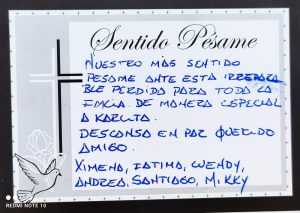 Sentido Pésame
NUESTRO MÁS SENTIDO
PESAME ANTE ESTA IRREPARA
BLE PERDIDA PARA TODA LA
FMCIA. DE MANERA ESPECIAL
A KARLITA.
DESCANSA EN PAZ QUERIDO
AMIGO.
XIMENA, FATIMA, WENDY,
ANDREA, SANTIAGO, MIKKY
REDMI NOTE 10